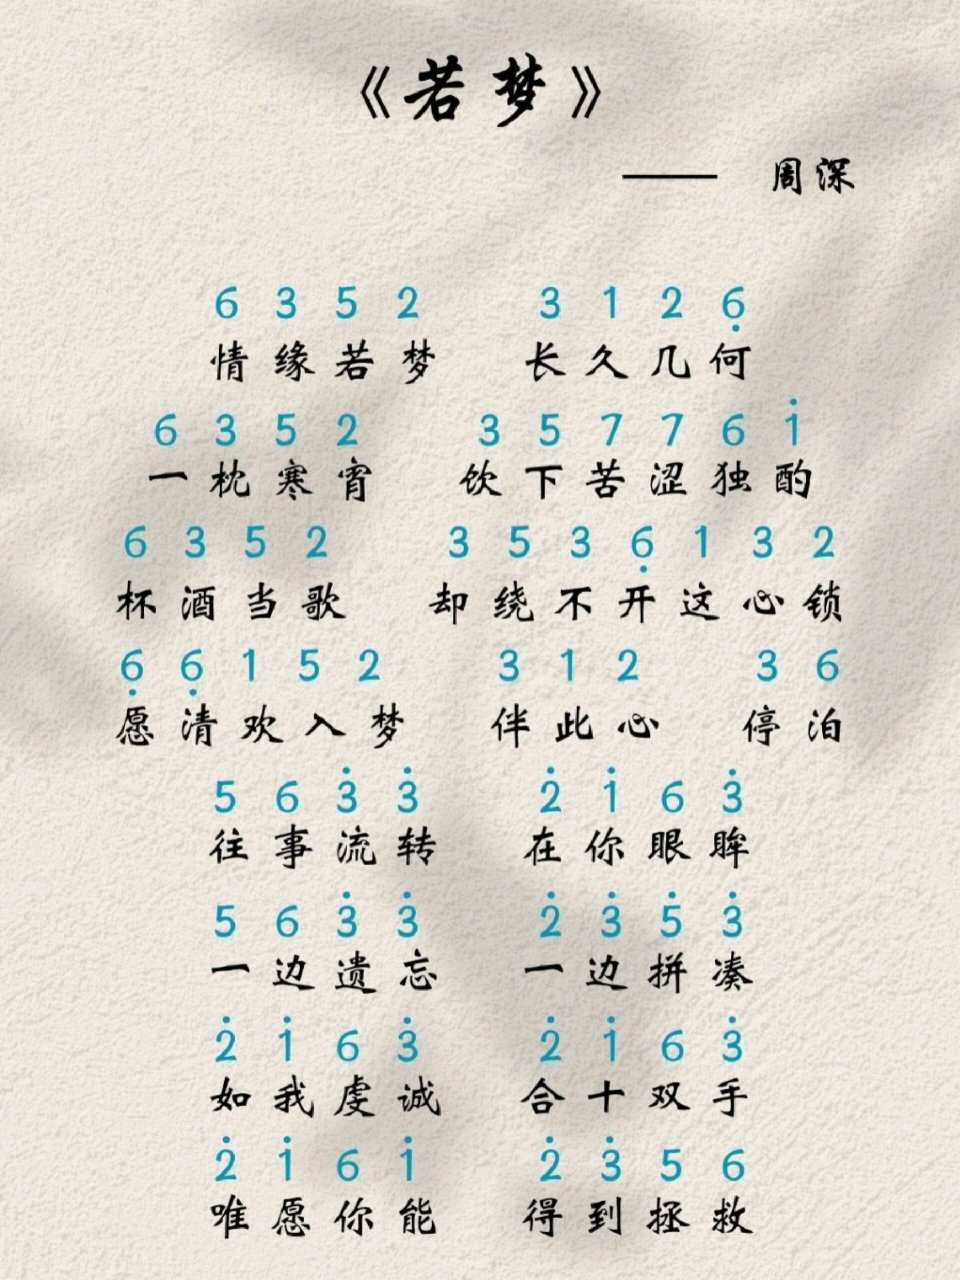 《若梦》
—— 周深
6 3 5 2 3 1 2 6̣
情缘若梦 长久几何
6 3 5 2 3 5 7 7 6 1̇
一枕寒宵 饮下苦涩独酌
6 3 5 2 3 5 3 6̣ 1 3 2
杯酒当歌 却绕不开这心锁
6̣ 6̣ 1 5 2 3 1 2 3 6
愿清欢入梦 伴此心 停泊
5 6 3̇ 3̇ 2̇ 1̇ 6 3̇
往事流转 在你眼眸
5 6 3̇ 3̇ 2̇ 3̇ 5̇ 3̇
一边遗忘 一边拼凑
2̇ 1̇ 6 3̇ 2̇ 1̇ 6 3̇
如我虔诚 合十双手
2̇ 1̇ 6 1̇ 2̇ 3̇ 5 6
唯愿你能 得到拯救